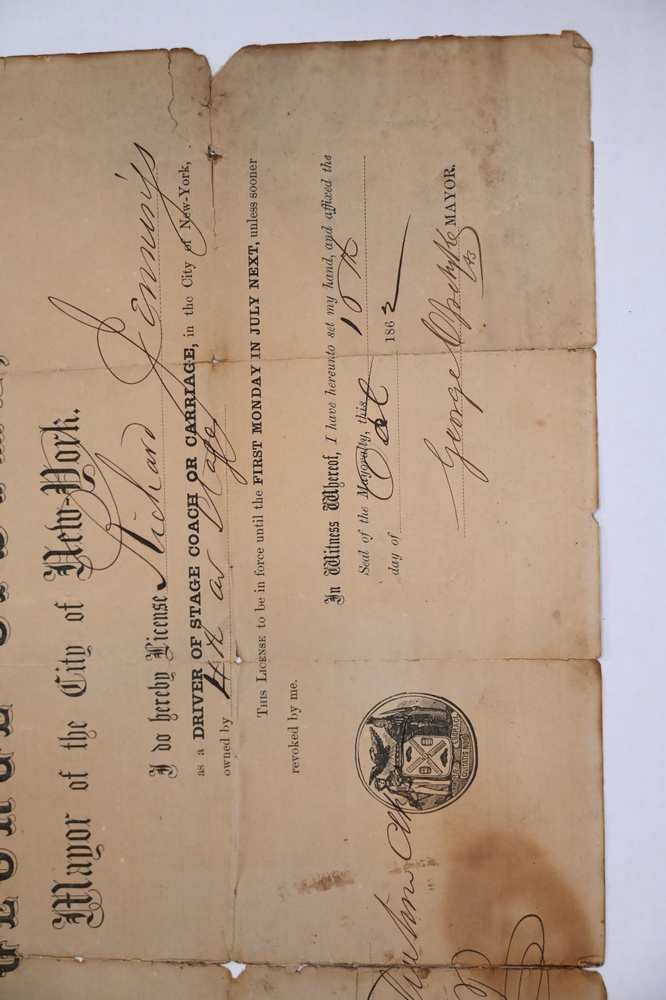 Mayor of the City of New-York.
I do hereby License Richard Jennings
as a DRIVER OF STAGE COACH OR CARRIAGE, in the City of New-York,
owned by 4th av Stage
THIS LICENSE to be in force until the FIRST MONDAY IN JULY NEXT, unless sooner
revoked by me.
In Witness Whereof, I have hereunto set my hand, and affixed the
Seal of the Mayoralty, this 10th
day of Oct 1862
George Opdyke MAYOR.